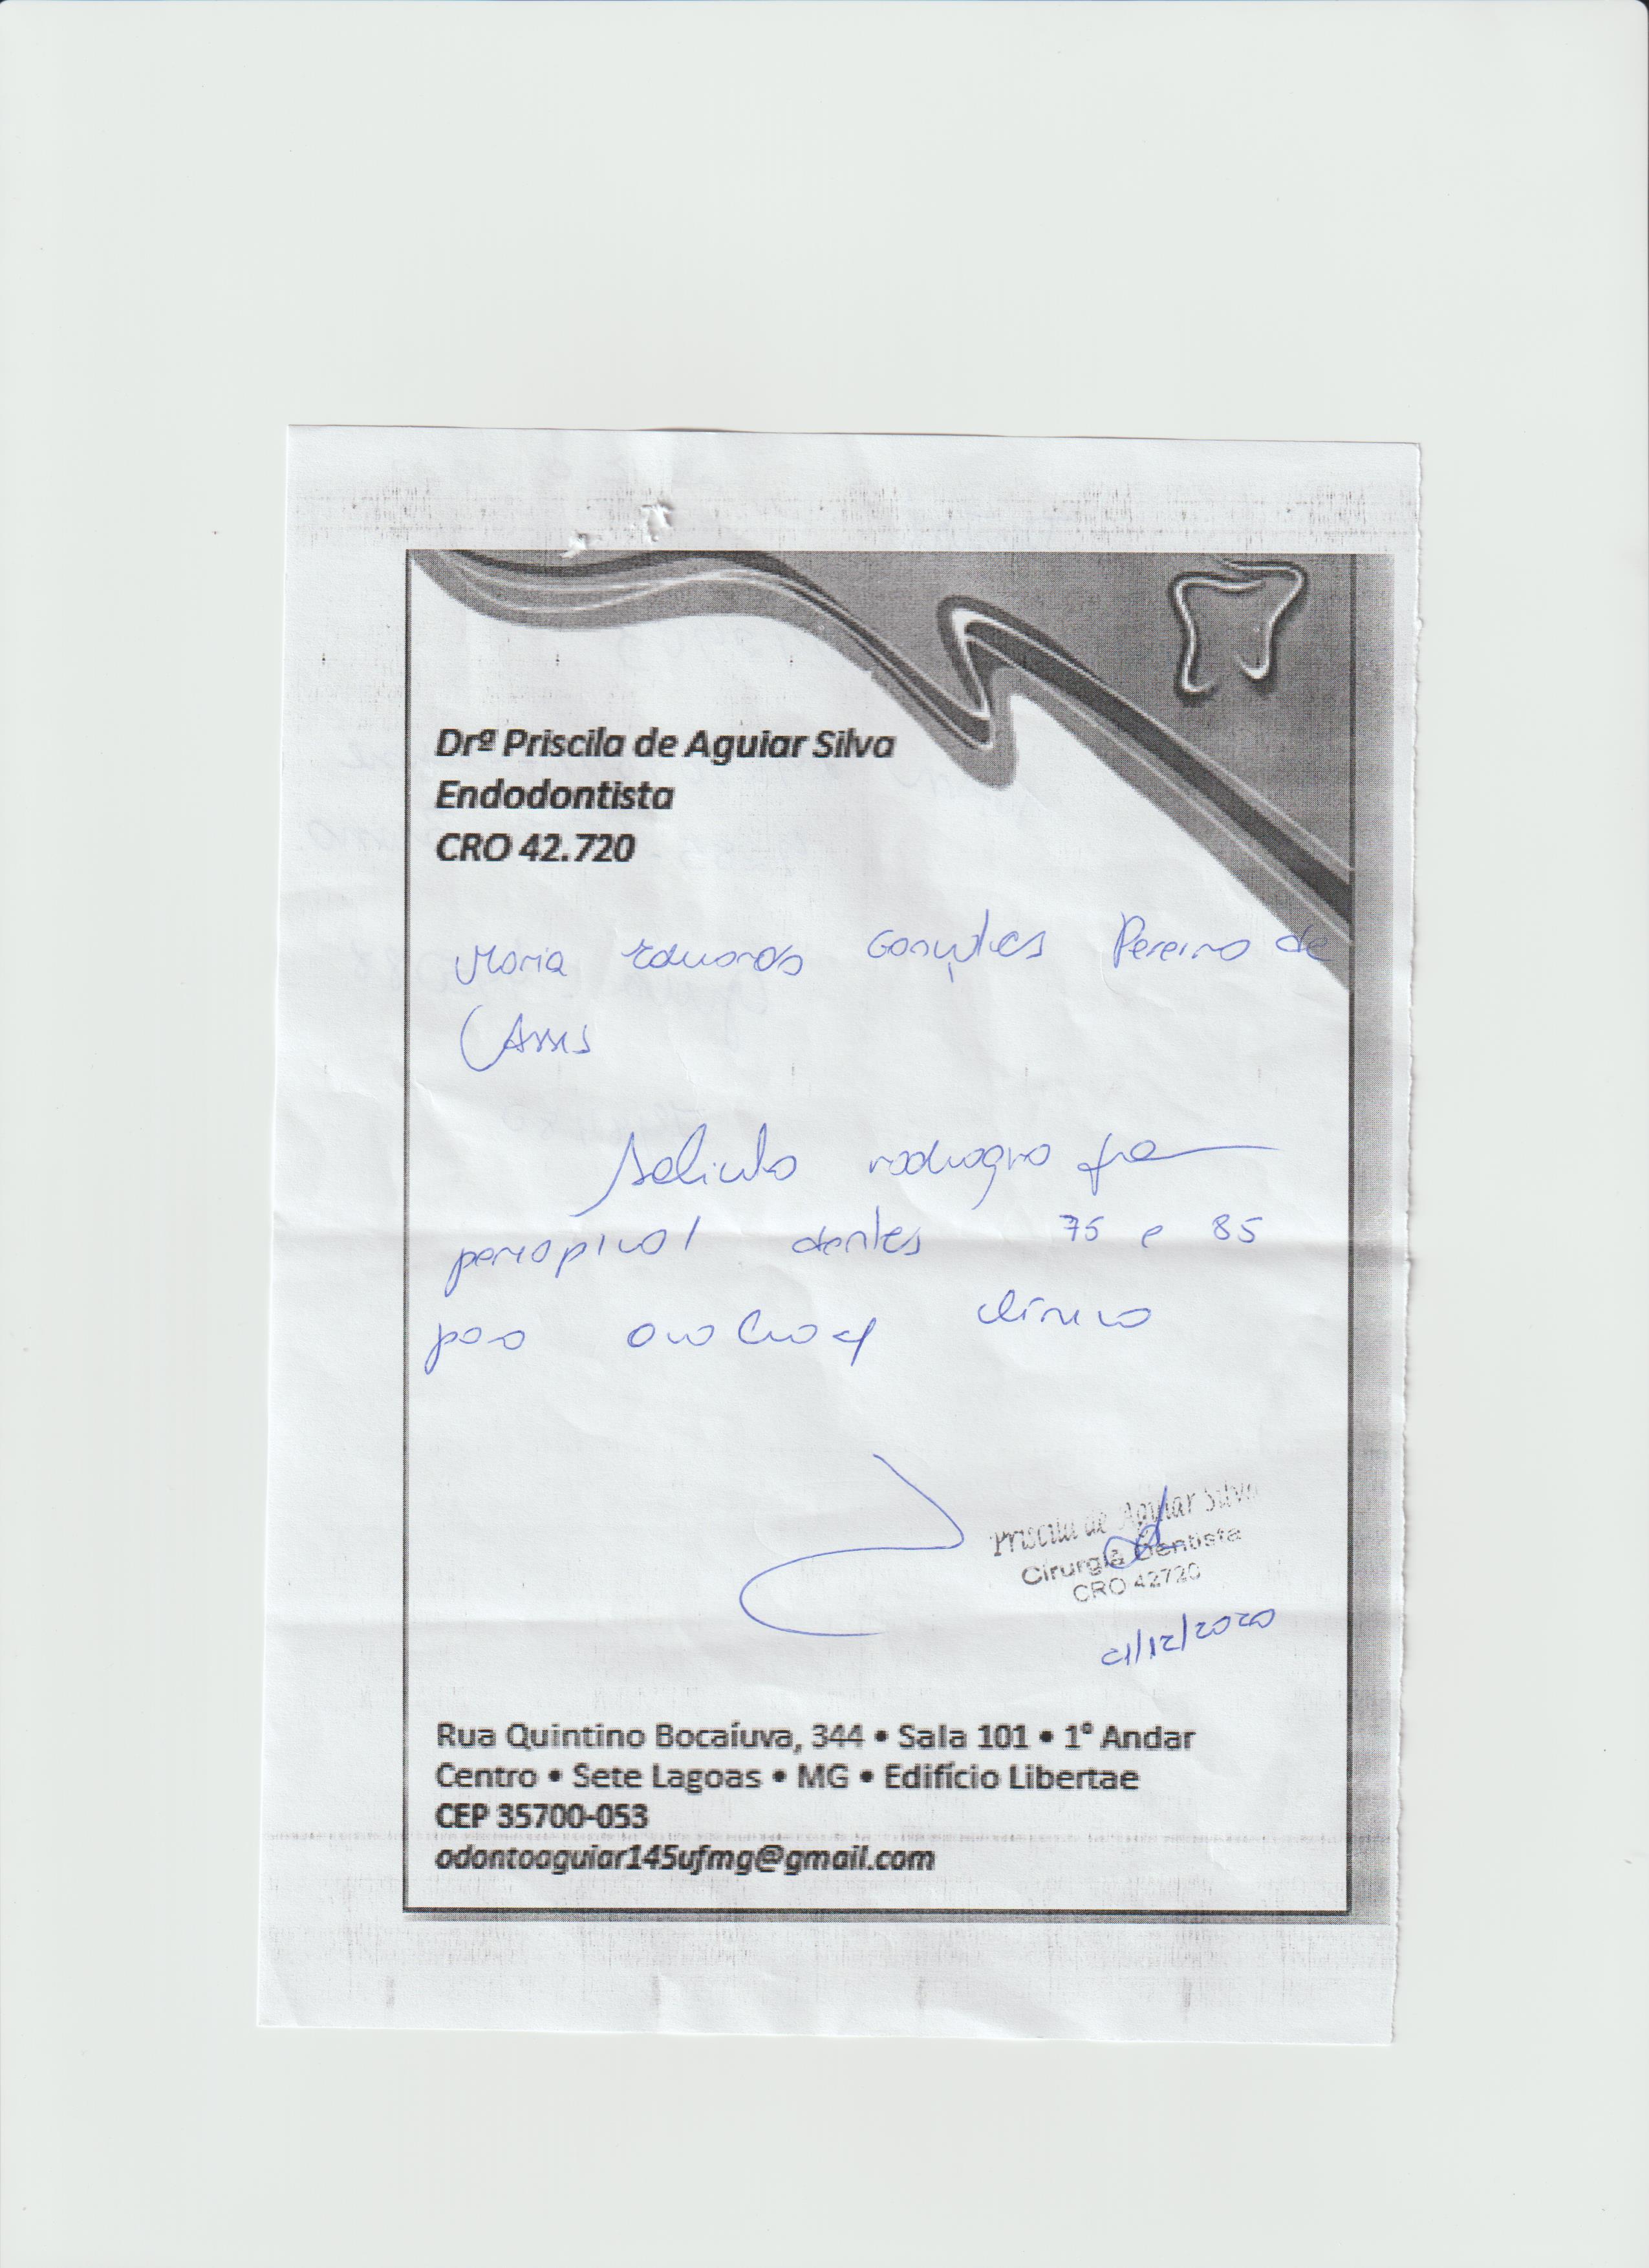 Drª Priscila de Aguiar Silva
Endodontista
CRO 42.720
Maria Eduarda Gonçalves Pereira de
Assis
Solicito radiografia
periapical dentes 75 e 85
para avaliação clínica
Priscila de Aguiar Silva
Cirurgiã Dentista
CRO 42720
21/12/2020
Rua Quintino Bocaíuva, 344 • Sala 101 • 1° Andar
Centro • Sete Lagoas • MG • Edifício Libertae
CEP 35700-053
odontoaguiar145ufmg@gmail.com